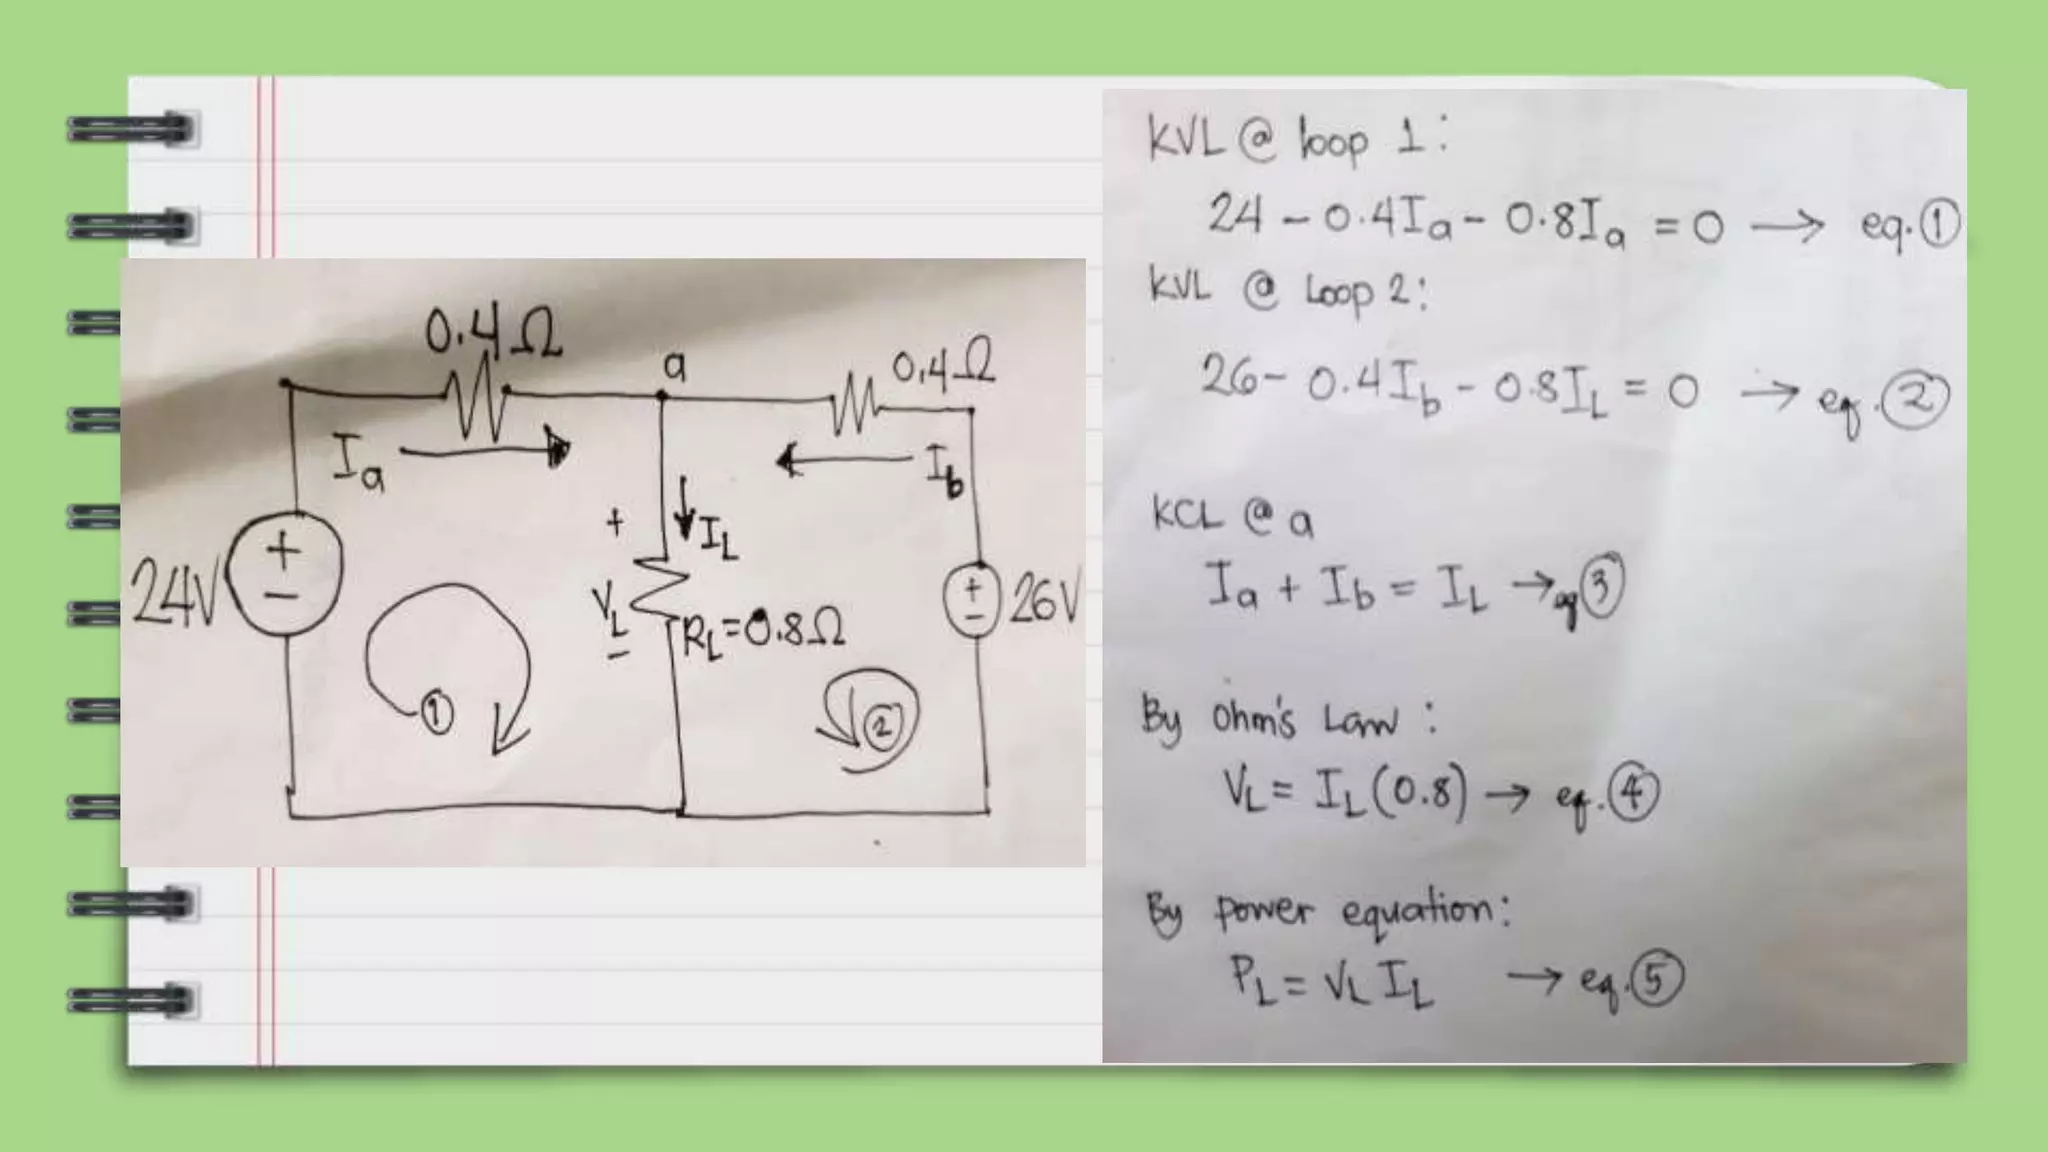 0.4Ω
a
0.4Ω
Ia
Ib
+
IL
24V
+
-
VL
RL=0.8Ω
-
+
-
26V
1
2
KVL @ loop 1:
24 - 0.4Ia - 0.8Ia = 0 → eq. ①
KVL @ Loop 2:
26 - 0.4Ib - 0.8IL = 0 → eq. ②
KCL @ a
Ia + Ib = IL → eq ③
By Ohm's Law :
VL = IL (0.8) → eq. ④
By power equation:
PL = VL IL → eq. ⑤